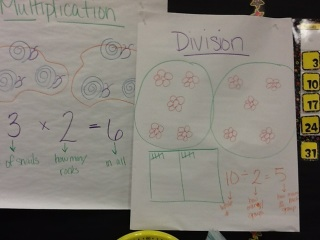 Multiplication
3 × 2 = 6
of snails
how many rocks
in all
Division
10 ÷ 2 = 5
3
10
17
24
31